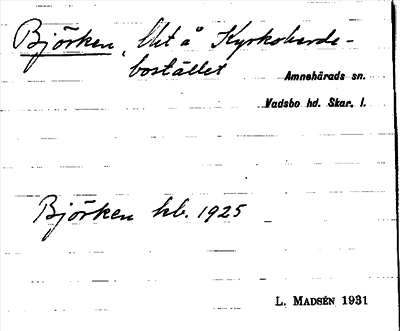 Björken, lht å Kyrkoherde-
bostället
Amnehärads sn.
Vadsbo hd. Skar. l.
Björken kb. 1925
L. MADSÉN 1931